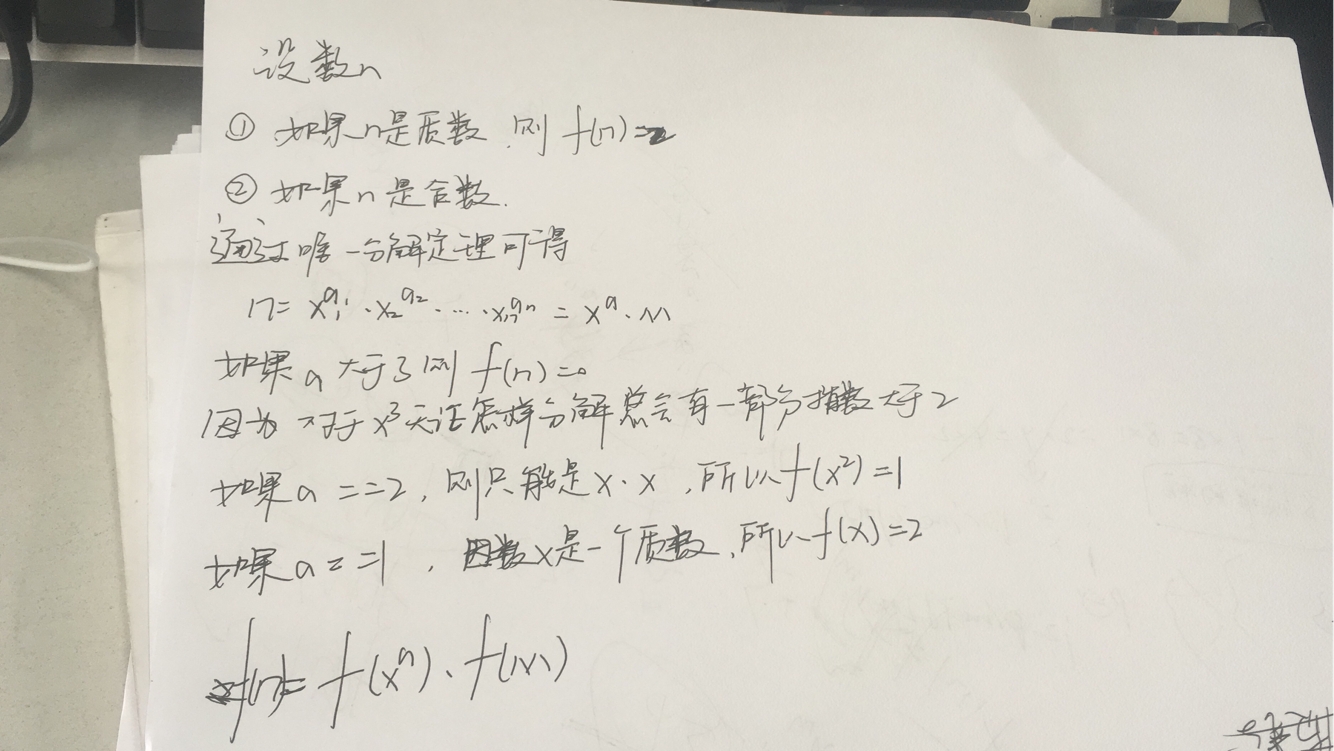 设数n
① 如果n是质数,则 f(n)=2
② 如果n是合数.
通过唯一分解定理可得
n= x₁^a₁ · x₂^a₂ · … · xₙ^aₙ = x^a · m
如果a大于3则 f(n)=0
因为对于x³无论怎样分解总会有一部分指数大于2
如果a==2,则只能是x·x,所以f(x²)=1
如果a==1,因数x是一个质数,所以f(x)=2
f(n)= f(x^a)·f(m)